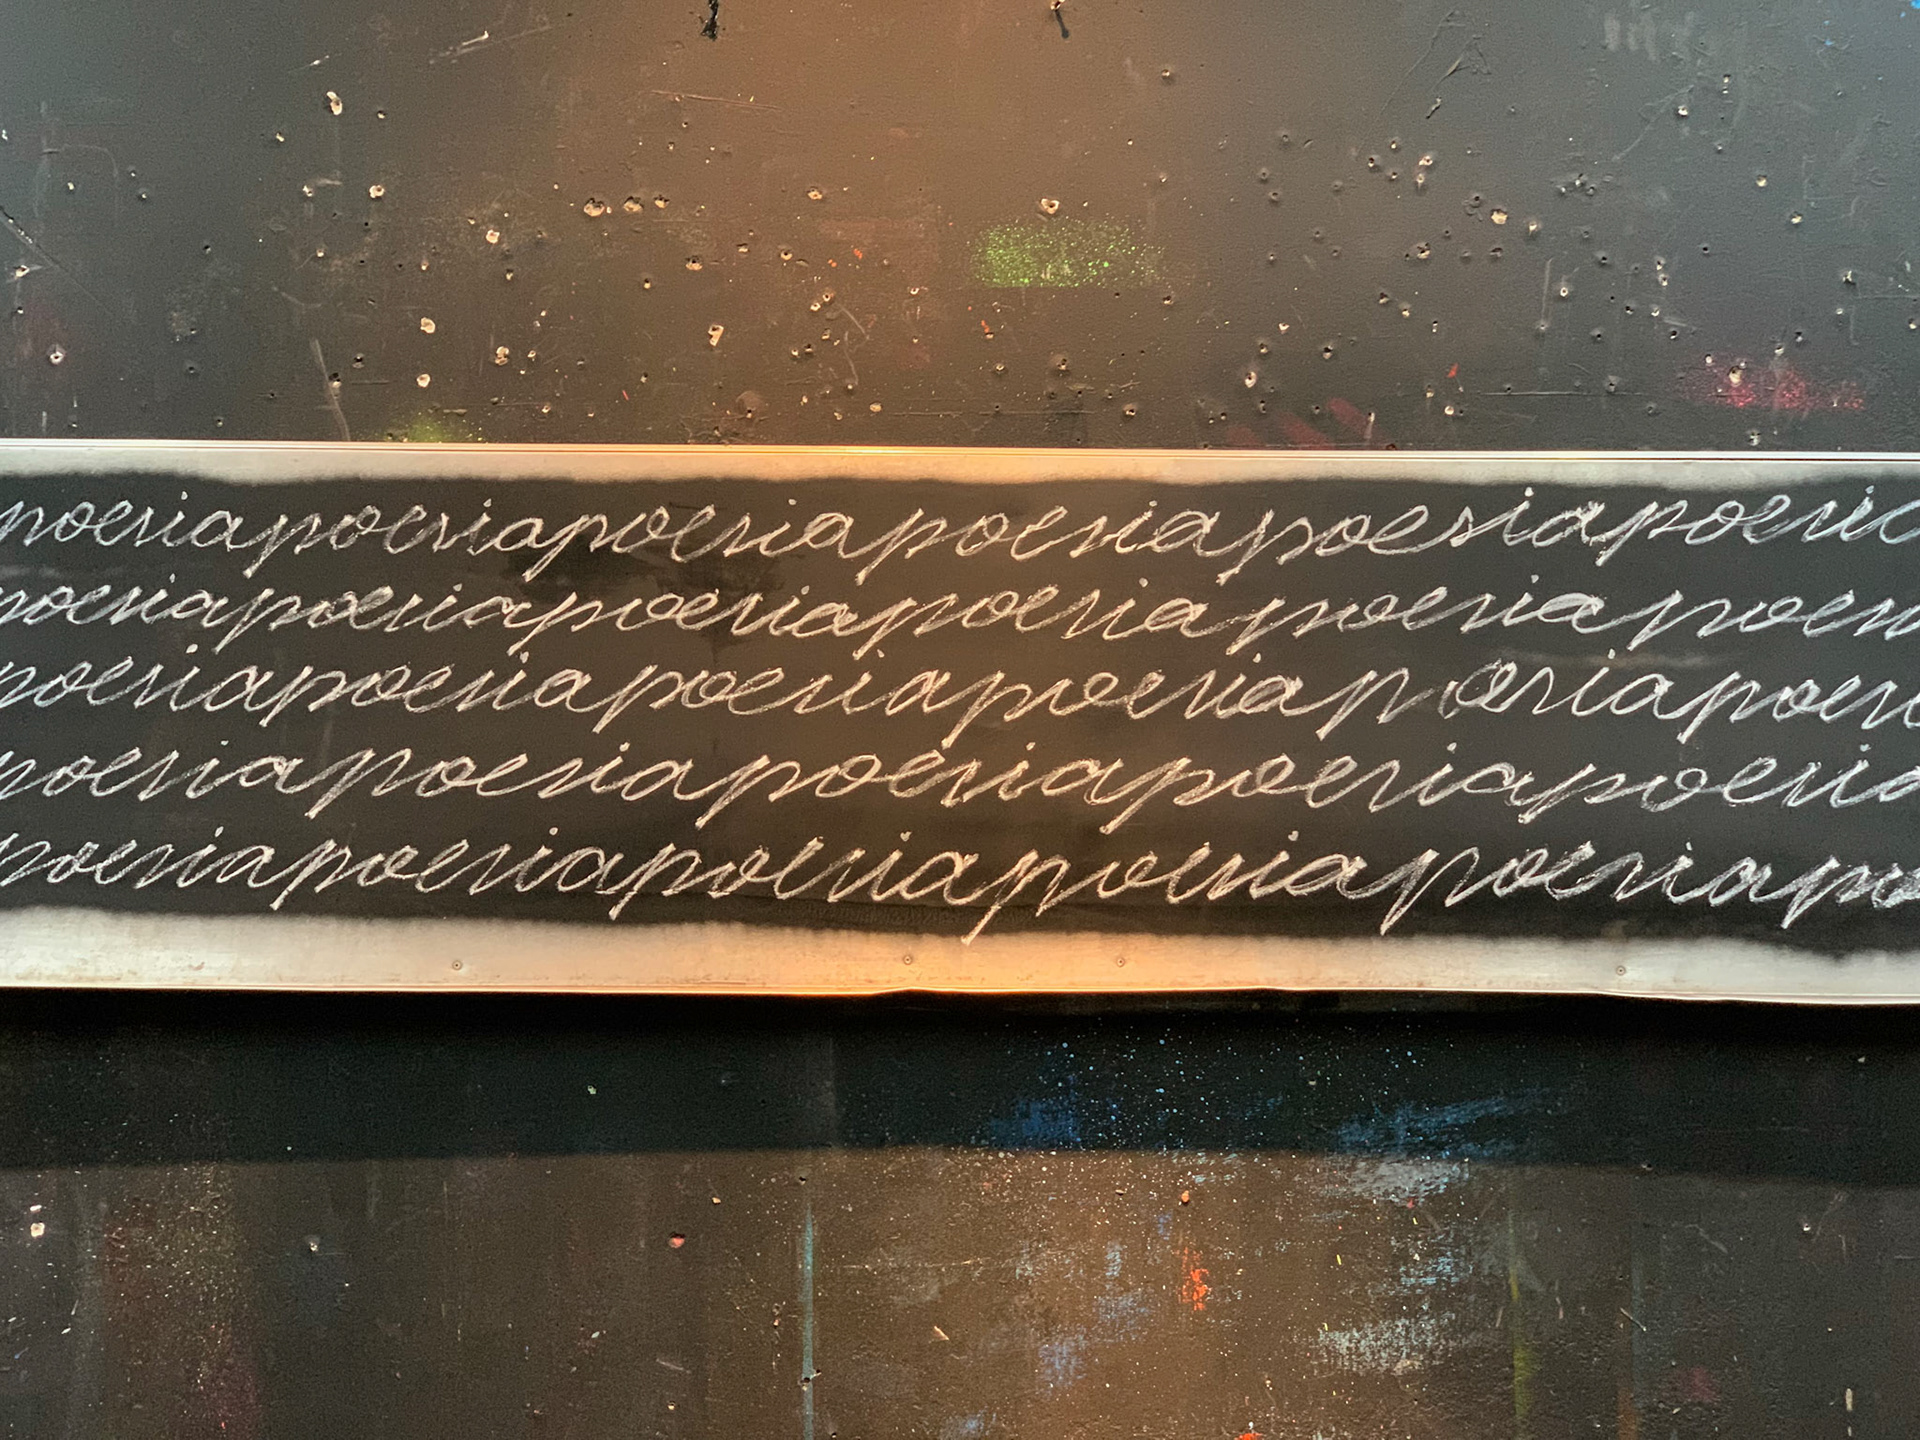 poesiapoesiapoesiapoesiapoesiapoesia
poesiapoesiapoesiapoesiapoesiapoes
poesiapoesiapoesiapoesiap oesiapoesi
poesiapoesiapoesiapoesiapoesia
poesiapoesiapoesiapoesiapoesiapo